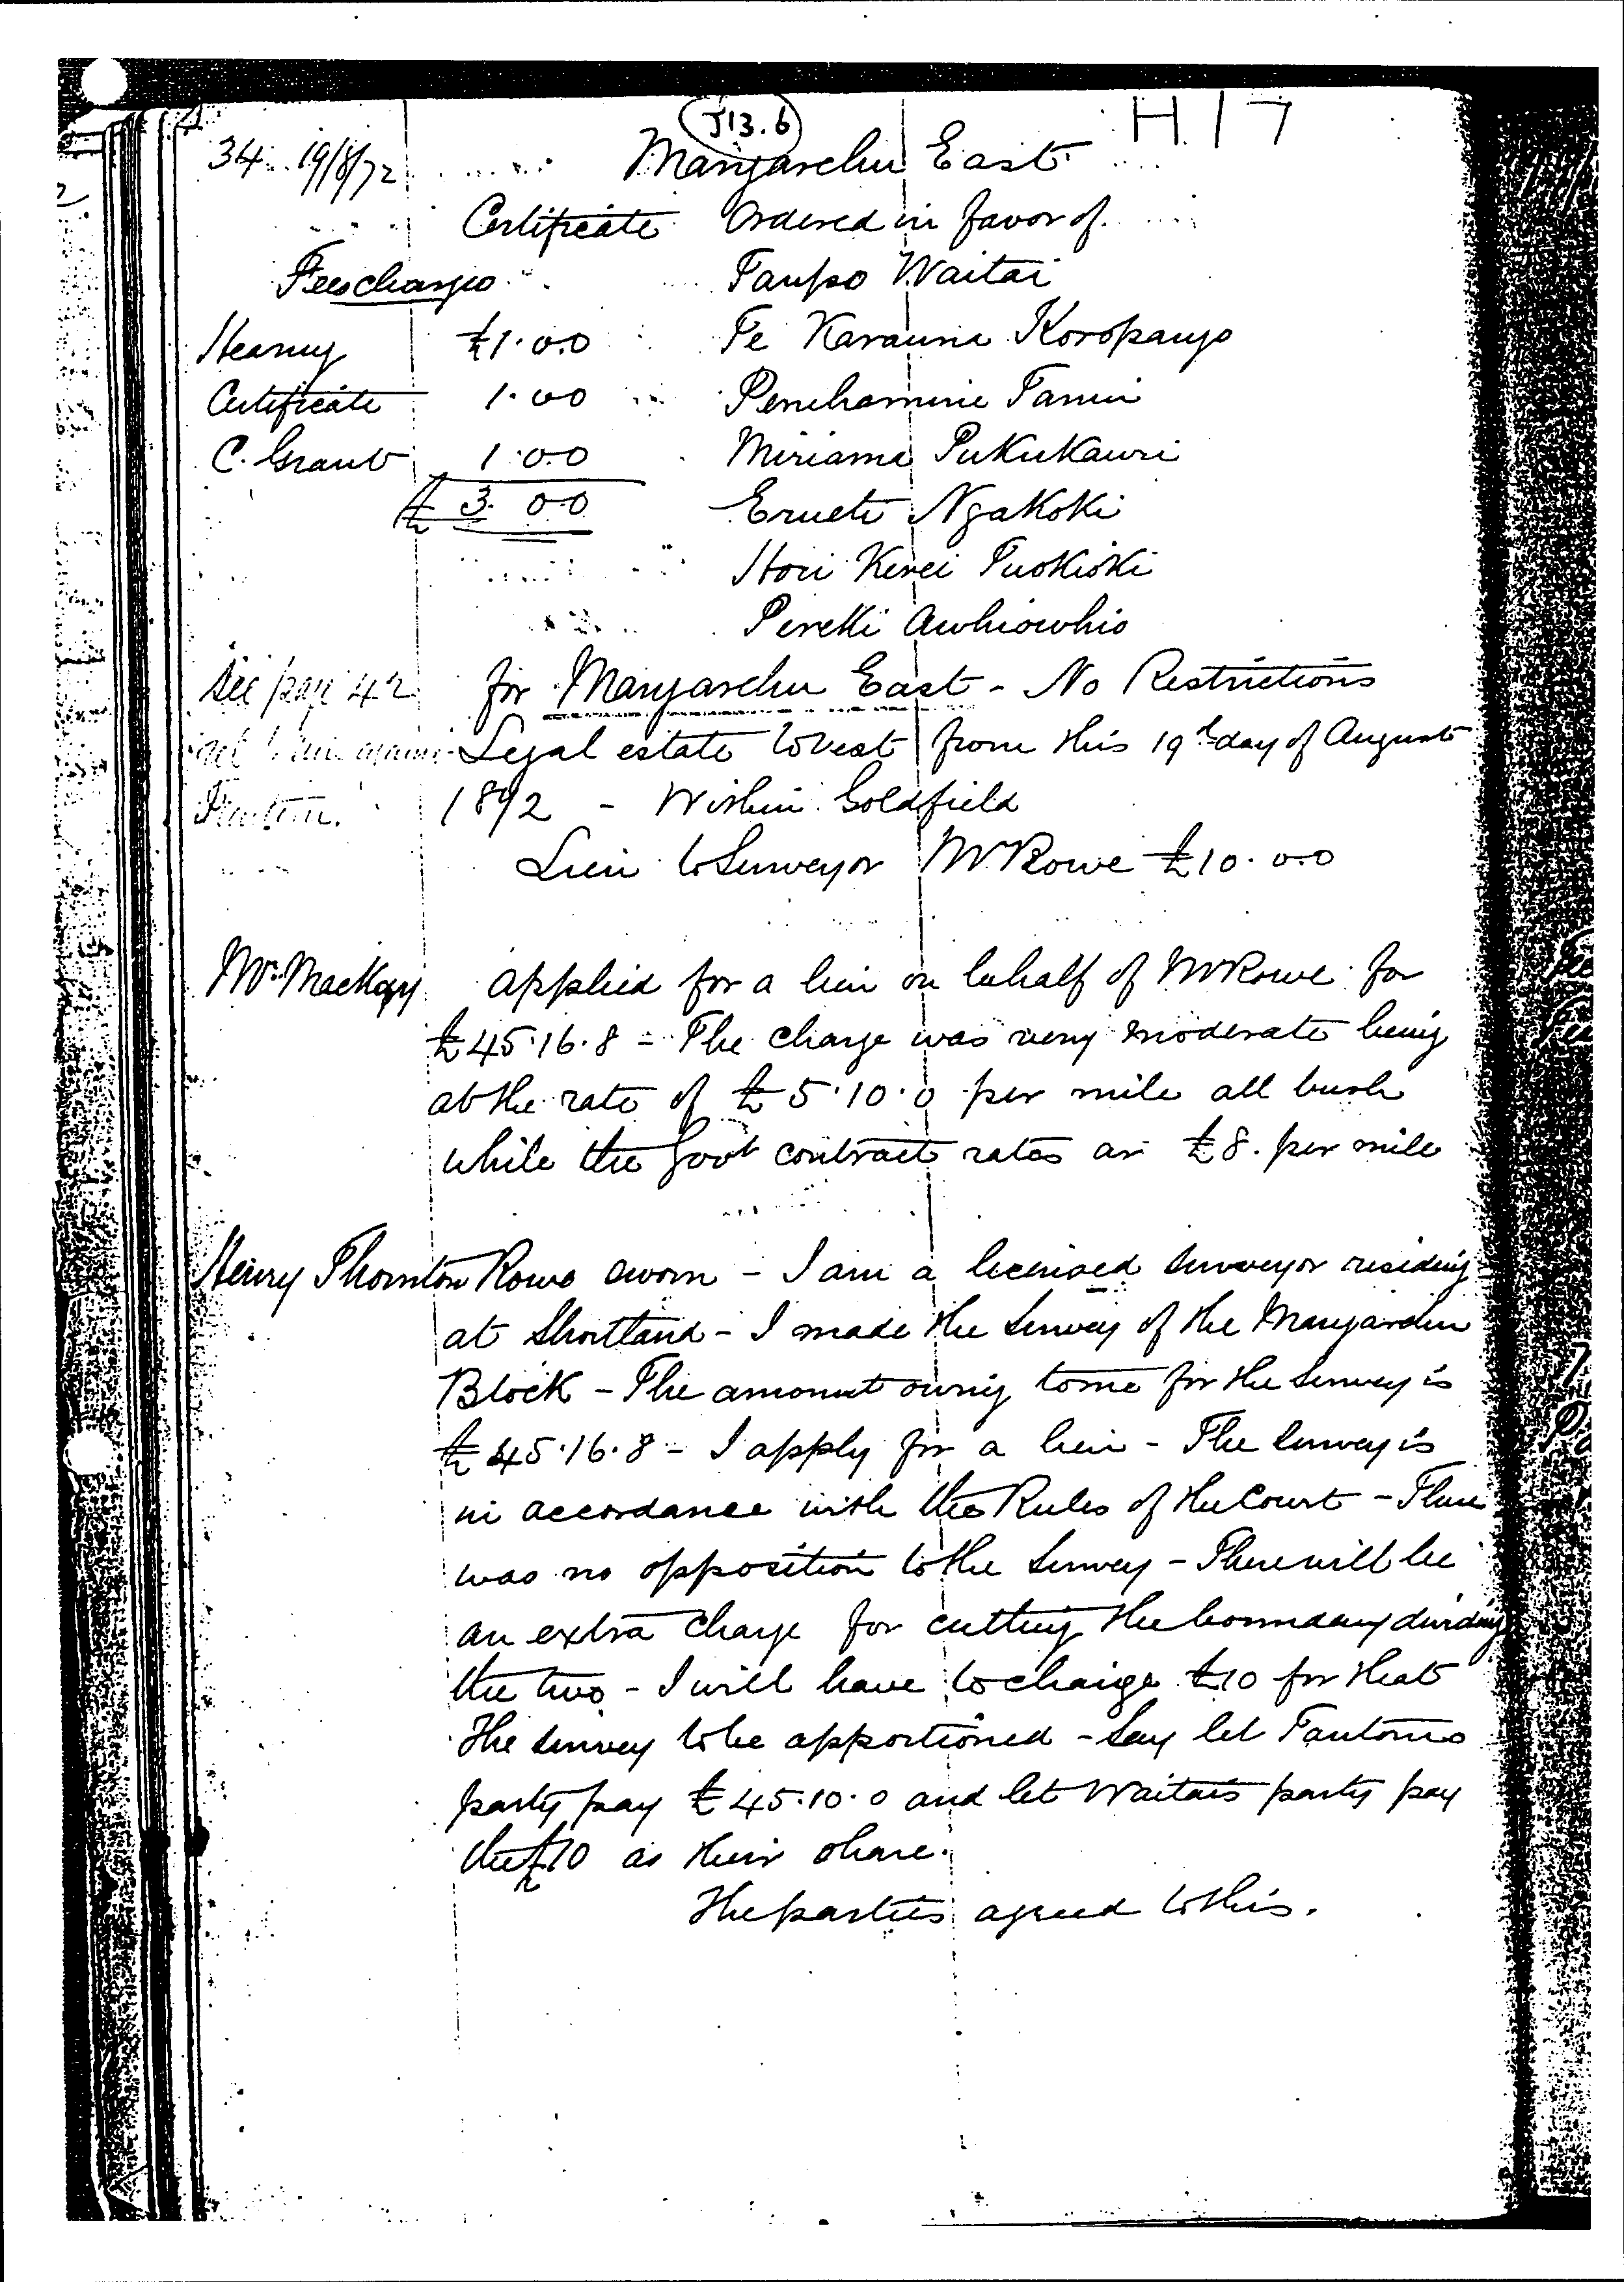 J13.6
H17
34 19/8/72 Mangarehu East
Certificate Ordered in favor of
Fees charged Taupo Waitai
Hearing £1.0.0 Te Karauna Koropango
Certificate 1.0 0 Penehamine Tanui
C. Grant 1.0.0 Miriama Pukukauri
£3. 0 0 Erueti Ngakoki
Hori Kerei Tuokioki
Pereki Awhiowhio
See page 42 for Mangarehu East - No Restrictions
Legal estate to vest from this 19th day of August
1872 - Within Goldfield
Lien to Surveyor Mr Rowe £10.0.0
Mr. Mackay applied for a lien on behalf of Mr Rowe for
£45.16.8 - The charge was very moderate being
at the rate of £5.10.0 per mile all bush
while the Govt contract rates are £8. per mile
Henry Thornton Rowe sworn - I am a licensed surveyor residing
at Shortland - I made the survey of the Mangarehu
Block - The amount owing to me for the survey is
£45.16.8 - I apply for a lien - The survey is
in accordance with the Rules of the Court - There
was no opposition to the survey - There will be
an extra charge for cutting the boundary dividing
the two - I will have to charge £10 for that
The survey to be apportioned - Say let Tautoru's
party pay £45.10.0 and let Waitai's party pay
the £10 as their share.
The parties agreed to this.